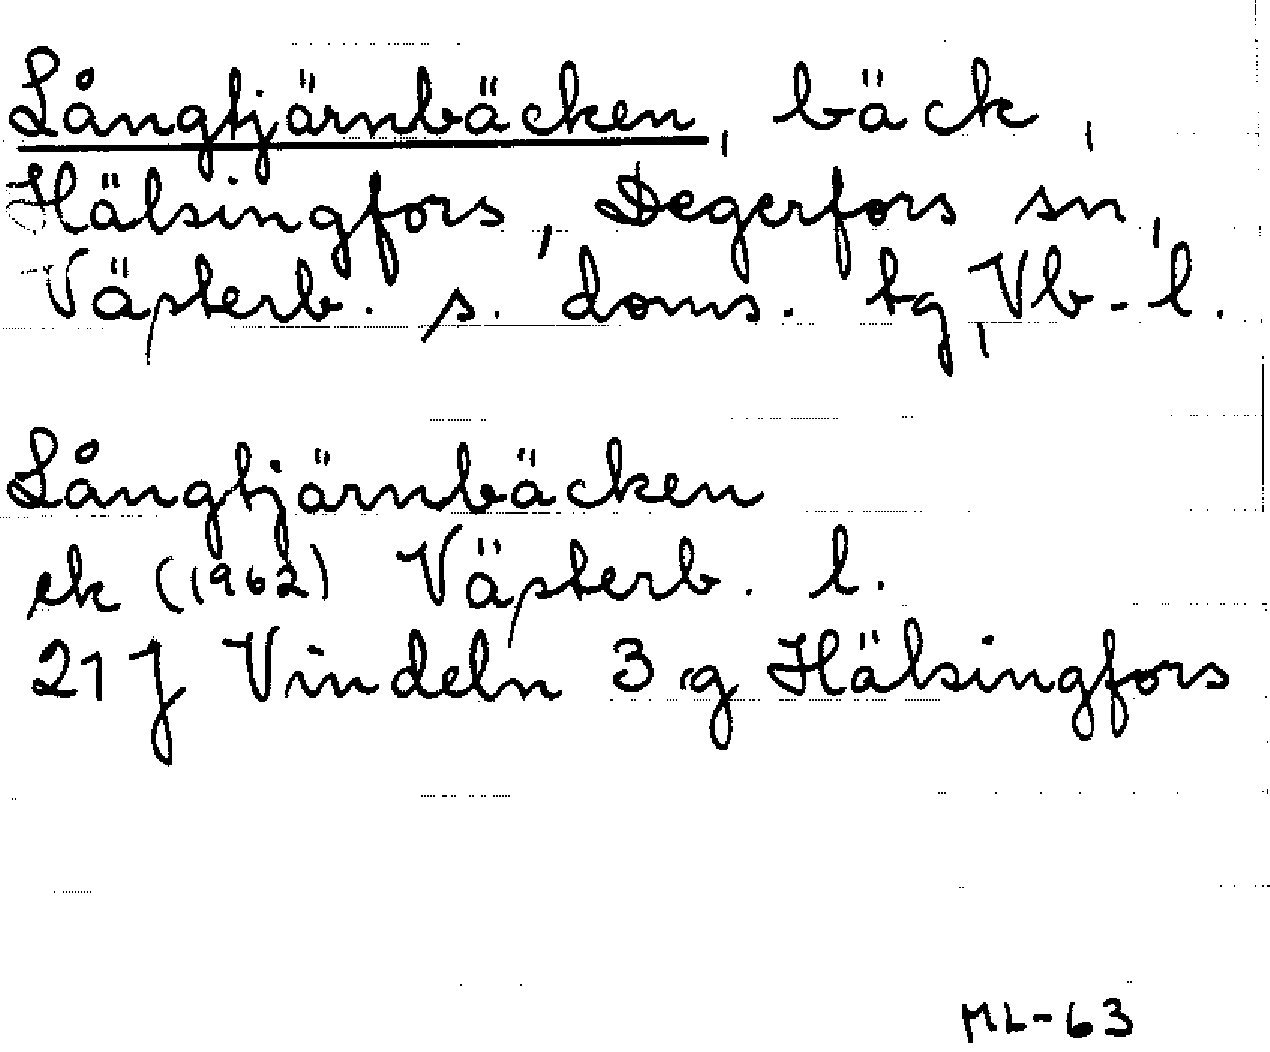 Långtjärnbäcken, bäck,
Hälsingfors, Degerfors sn,
Västerb. s. doms. tg, Vb-l.
Långtjärnbäcken
ek (1962) Västerb. l.
21 J Vindeln 3 g Hälsingfors
ML-63